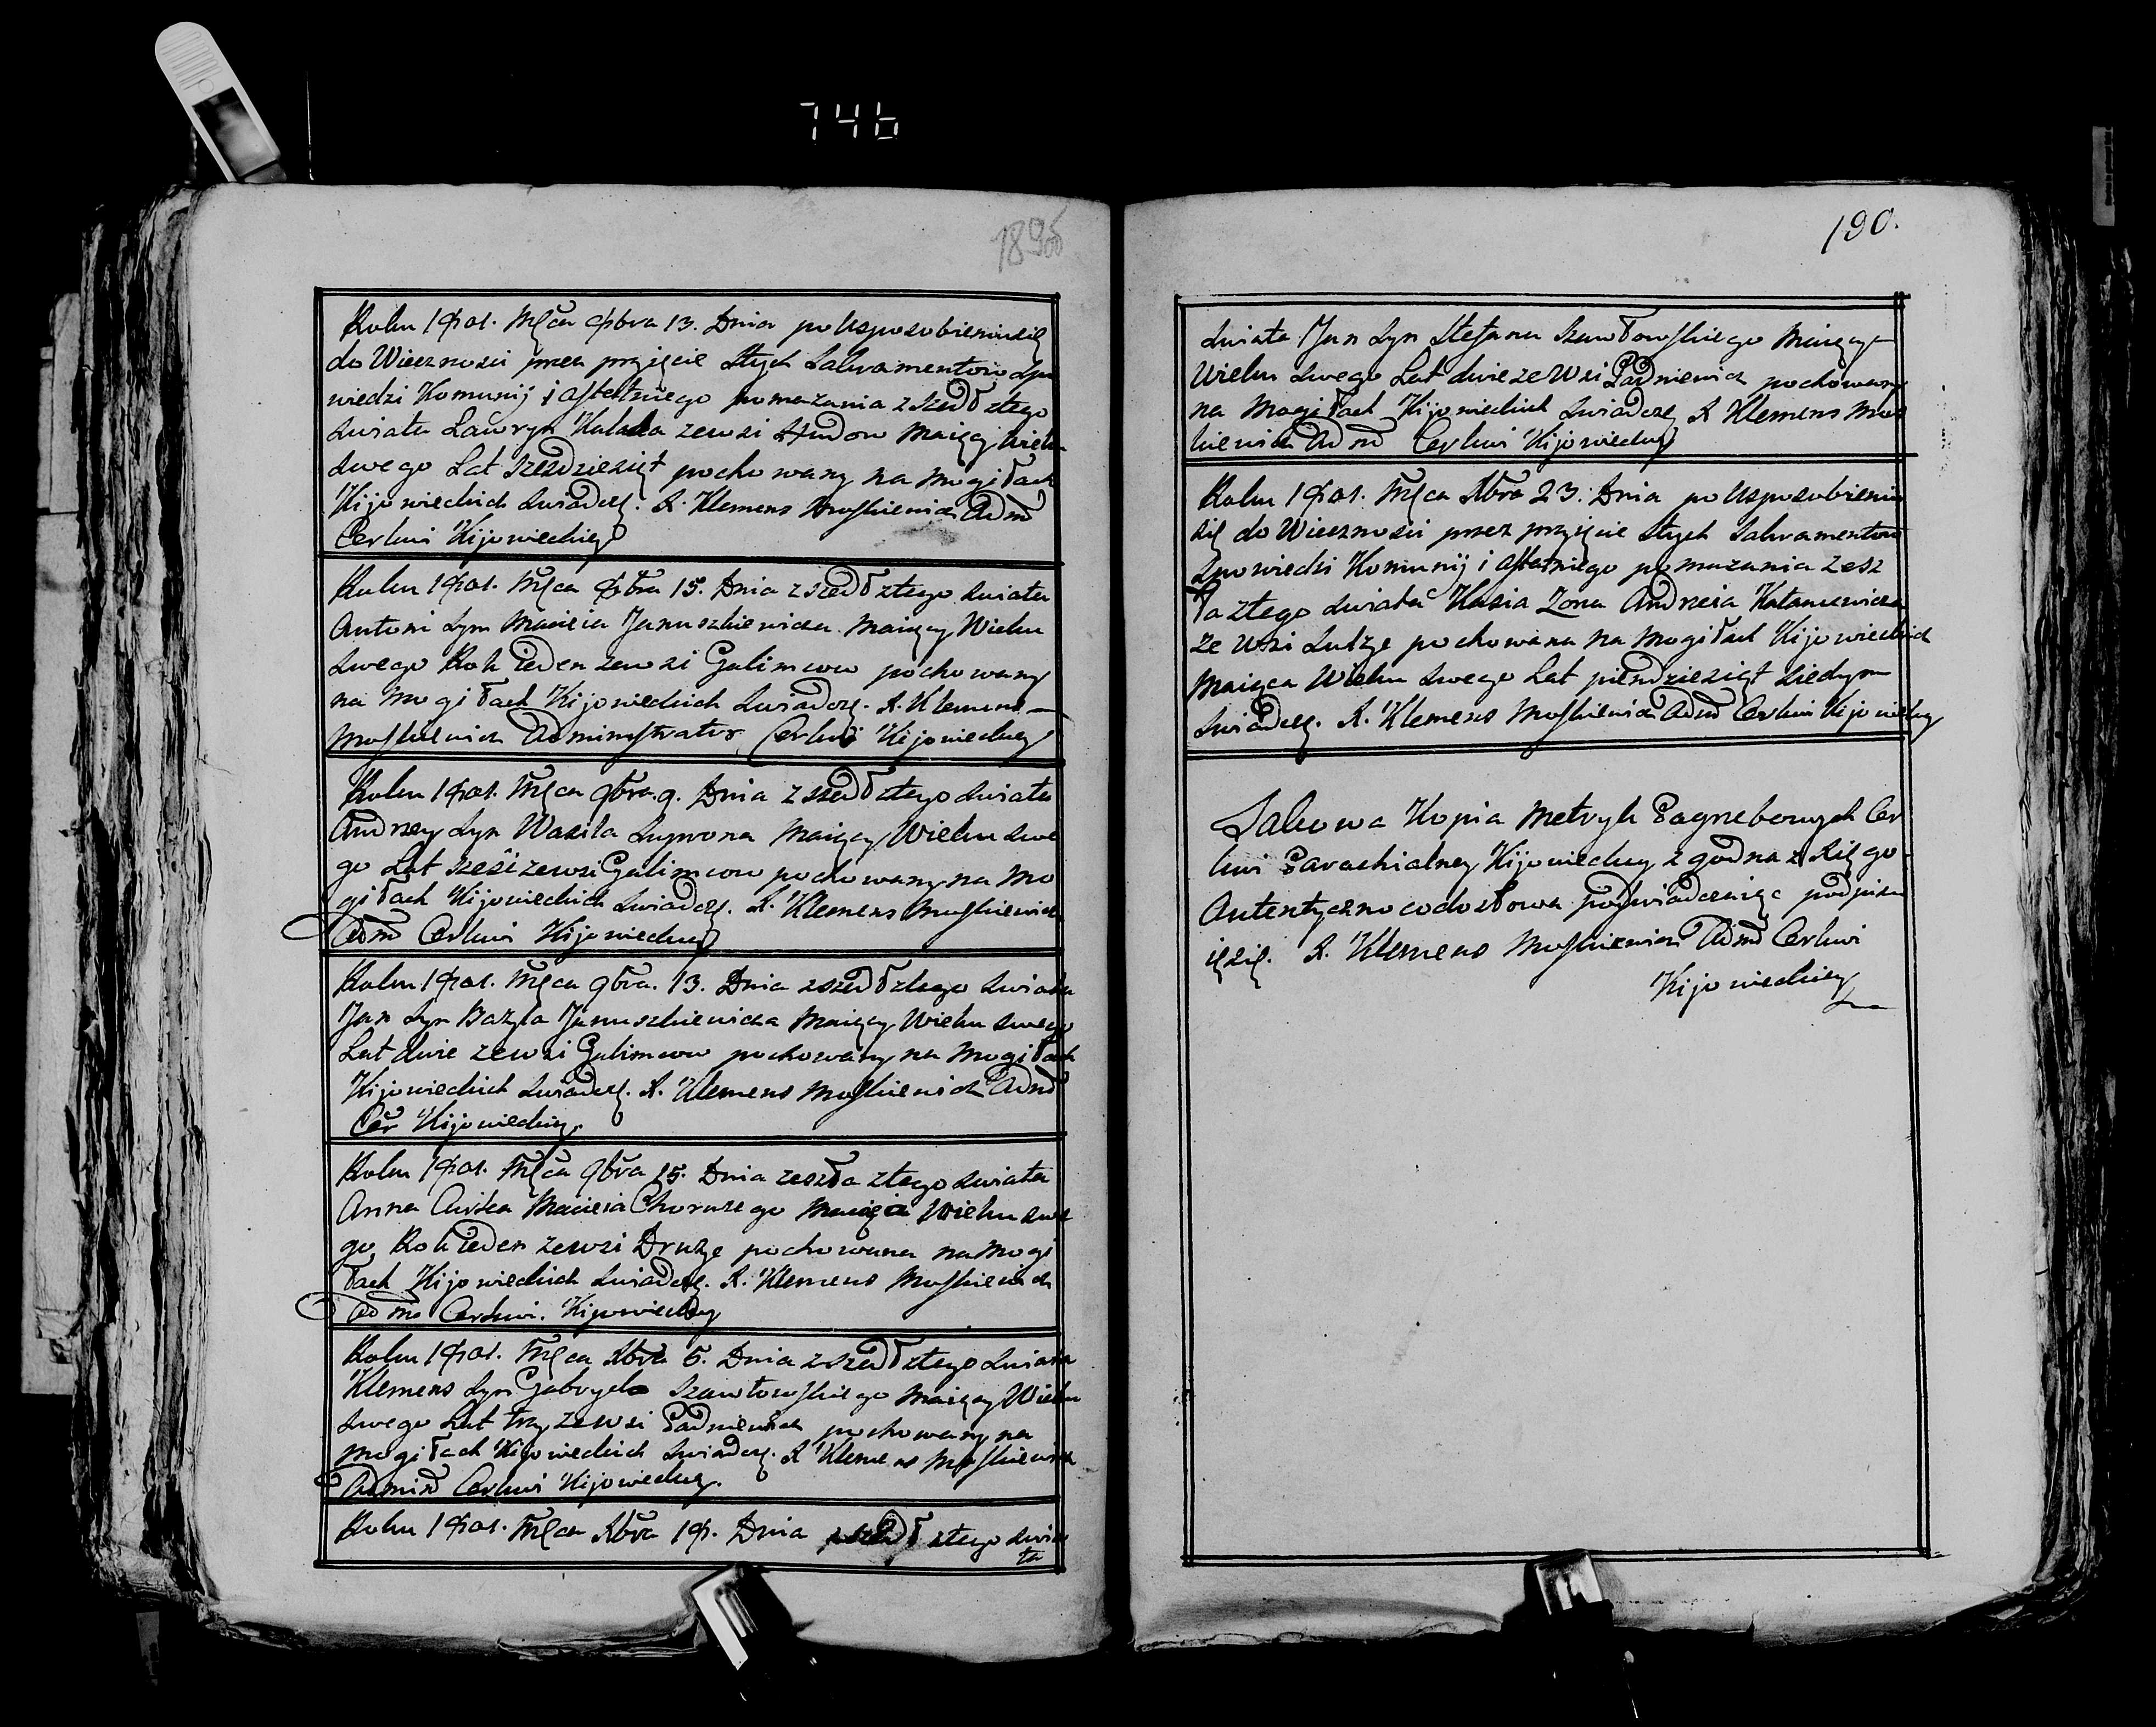 746
190.
Roku 1801. Mca 8bra 13. Dnia po Usposobieniu się
do Wiecznosci przez przyięcie Stych Sakramentow Spo
wiedzi Komunij i ostatniego pomazania zszedł ztego
swiata Ławryn zewsi Studow Maiący Wieku
swego Lat Szesdziesiąt pochowany na mogiłach
Kijowieckich Swiadczę. X. Klemens Moskiewicz Adm
Cerkwi Kijowieckiey
Roku 1801. Mca 8bra 15. Dnia zszedł ztego swiata
Antoni Syn Macieia Januszkiewicza Maiący Wieku
swego Rok Ieden zewsi Galimcow pochowany
na Mogiłach Kijowieckich Swiadczę. X. Klemens
Moskiewicz Administrator Cerkwi Kijowieckiey
Roku 1801. Mca 9bra. 9. Dnia zszedł ztego swiata
Andrzey Syn Wasila Maiący Wieku swe
go Lat sześć zewsi Galimcow pochowany na Mo
giłach Kijowieckich Swiadczę. X. Klemens Moskiewicz
Adm Cerkwi Kijowieckiey
Roku 1801. Mca 9bra. 13. Dnia zszedł ztego Swiata
Jan Syn Bazyla Januszkiewicza Maiący Wieku swego
Lat dwie zewsi Galimcow pochowany na Mogiłach
Kijowieckich Swiadczę. X. Klemens Moskiewicz Adm
Cer Kijowieckiey.
Roku 1801. Mca 9bra 15. Dnia zeszła ztego swiata
Anna Curka Macieia Choruzego Maiąca Wieku swe
go Rok Ieden zewsi Druzge pochowana na Mogi
łach Kijowieckich Swiadczę. X. Klemens Moskiewicz
Adm Cerkwi. Kijowieckiey
Roku 1801. Mca Xbra 6. Dnia zszedł ztego Swiata
Klemens Syn Gabryela Szawłowskiego Maiący Wieku
swego Lat trzy zewsi Padniewicz pochowany na
Mogiłach Kijowieckich Swiadczę. X Klemens Moskiewicz
Admin Cerkwi Kijowieckiey.
Roku 1801. Mca Xbra 18. Dnia zszedł ztego swia
ta
swiata Jan Syn Stefana Szawłowskiego Maiący
Wieku swego Lat dwie ze Wsi Padniewicz pochowany
na Mogiłach Kijowieckich Swiadczę X Klemens Mos
kiewicz Adm Cerkwi Kijowieckiey
Roku 1801. Mca Xbra 23. Dnia po Usposobieniu
się do Wiecznosci przez przyięcie Stych Sakramentow
Spowiedzi Komunij i ostatniego pomazania zesz
ła ztego swiata Kasia Zona Andrzeia
ze Wsi Ludzge pochowana na Mogiłach Kijowieckich
Maiąca Wieku swego Lat piendziesiąt siedym
Swiadczę. X. Klemens Moskiewicz Adm Cerkwi Kijowieckiey
Takowa Kopia Metryk Pogrzebowych Cer
kwi Parachialney Kijowieckiey zgodna z Xięgo
Autentyczno codosłowa poswiadczaiąc podpisu
ię się. X. Klemens Moskiewicz Adm Cerkwi
Kijowieckiey